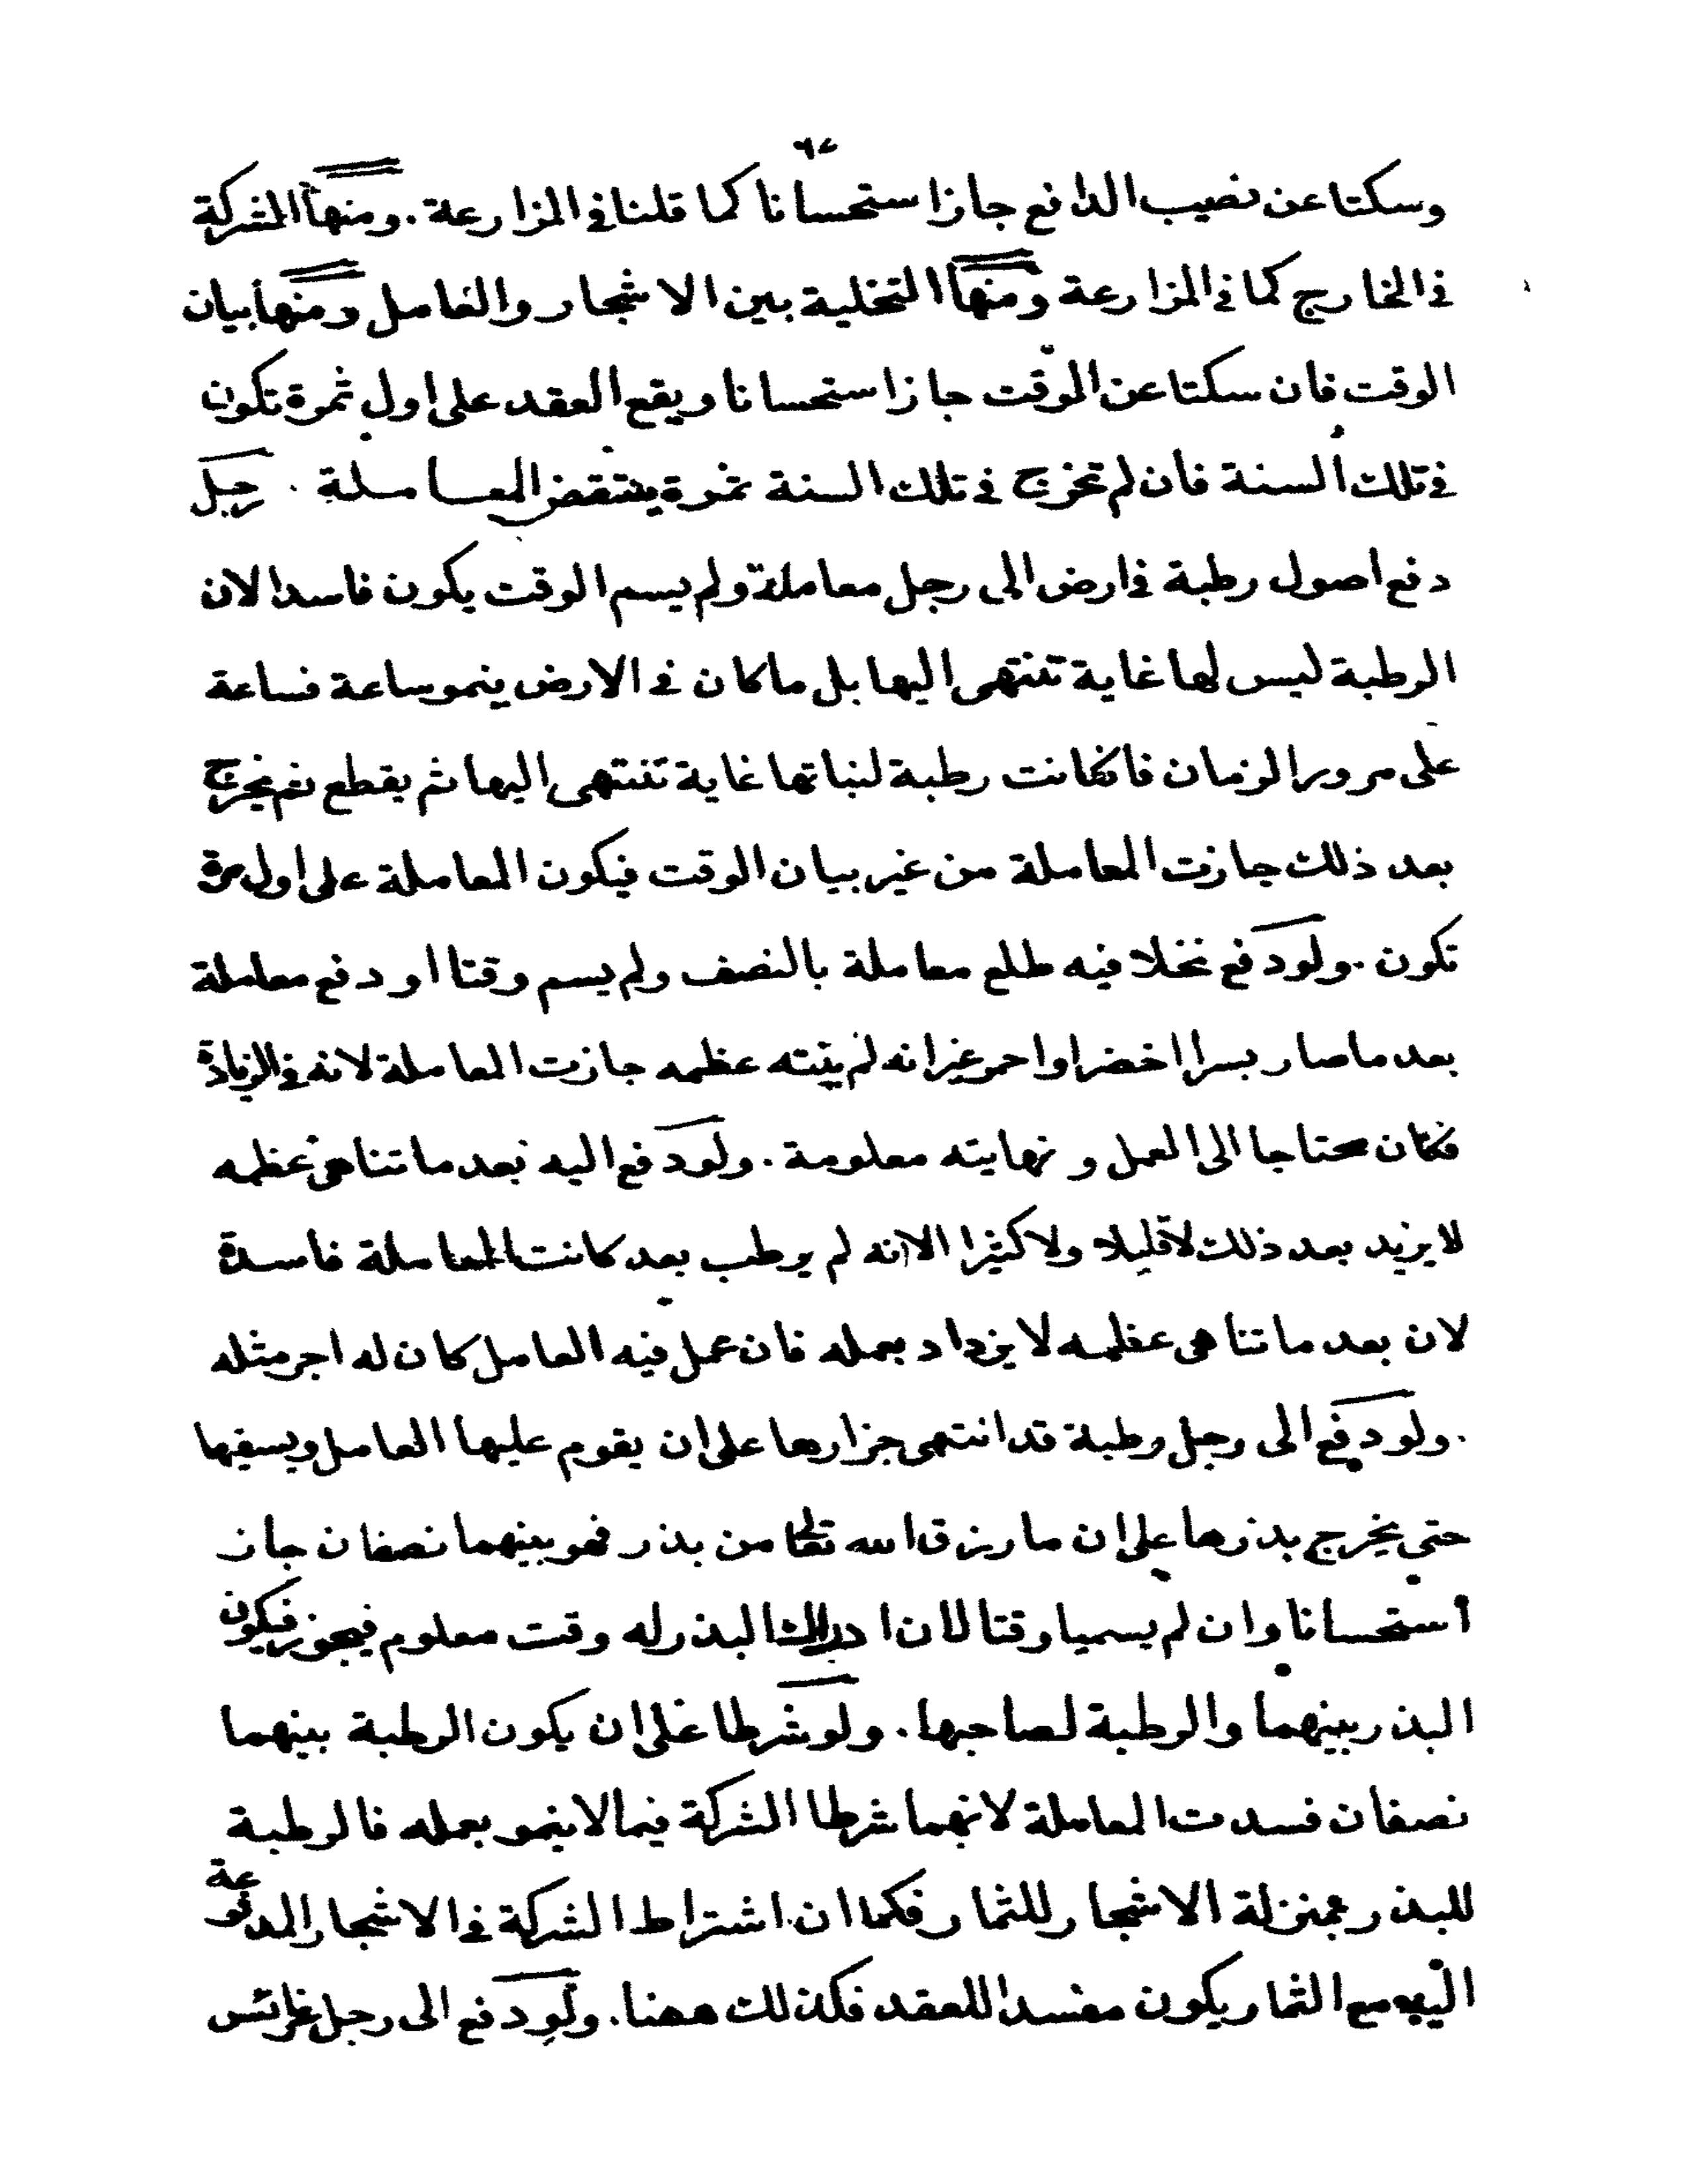 وسكتا عن نصيب الدافع جاز استحسانا كما قلنا في المزارعة . ومنها الشركة
في الخارج كما في المزارعة ومنها التخلية بين الاشجار والعامل ومنها بيان
الوقت فان سكتا عن الوقت جاز استحسانا ويقع العقد على اول ثمرة تكون
في تلك السنة فان لم تخرج في تلك السنة ثمرة ينتقض المعاملة . رجل
دفع اصول رطبة في ارض الى رجل معاملة ولم يسم الوقت يكون فاسدا لان
الرطبة ليس لها غاية تنتهى اليها بل ما كان في الارض ينمو ساعة فساعة
على مرور الزمان فان كانت رطبة لنباتها غاية تنتهى اليها ثم يقطع ثم يخرج
بعد ذلك جازت المعاملة من غير بيان الوقت فيكون المعاملة على اول مرة
تكون . ولو دفع نخلا فيه طلع معاملة بالنصف ولم يسم وقتا او دفع معاملة
بعد ما صار بسرا اخضر او احمر غير انه لم يتنه عظمه جازت المعاملة لانه في الزيادة
فكان محتاجا الى العمل و نهايته معلومة . ولو دفع اليه بعد ما تناهى عظمه
لا يزيد بعد ذلك لا قليلا ولا كثيرا الا انه لم يرطب بعد كانت المعاملة فاسدة
لان بعد ما تناهى عظمه لا يزداد بعمله فان عمل فيه العامل كان له اجر مثله
. ولو دفع الى رجل رطبة قد انتهى جزازها على ان يقوم عليها العامل ويسقيها
حتى يخرج بذرها على ان ما رزق الله تعالى من بذر فهو بينهما نصفان جاز
استحسانا وان لم يسميا وقتا لان ادراك البذر له وقت معلوم فيجوز فيكون
البذر بينهما والرطبة لصاحبها . ولو شرطا على ان يكون الرطبة بينهما
نصفان فسدت المعاملة لانهما شرطا الشركة فيما لا ينمو بعمله فالرطبة
للبذر بمنزلة الاشجار للثمار فكما ان اشتراط الشركة في الاشجار المدفوعة
اليه مع الثمار يكون مفسدا للعقد فكذلك ههنا . ولو دفع الى رجل غرائس